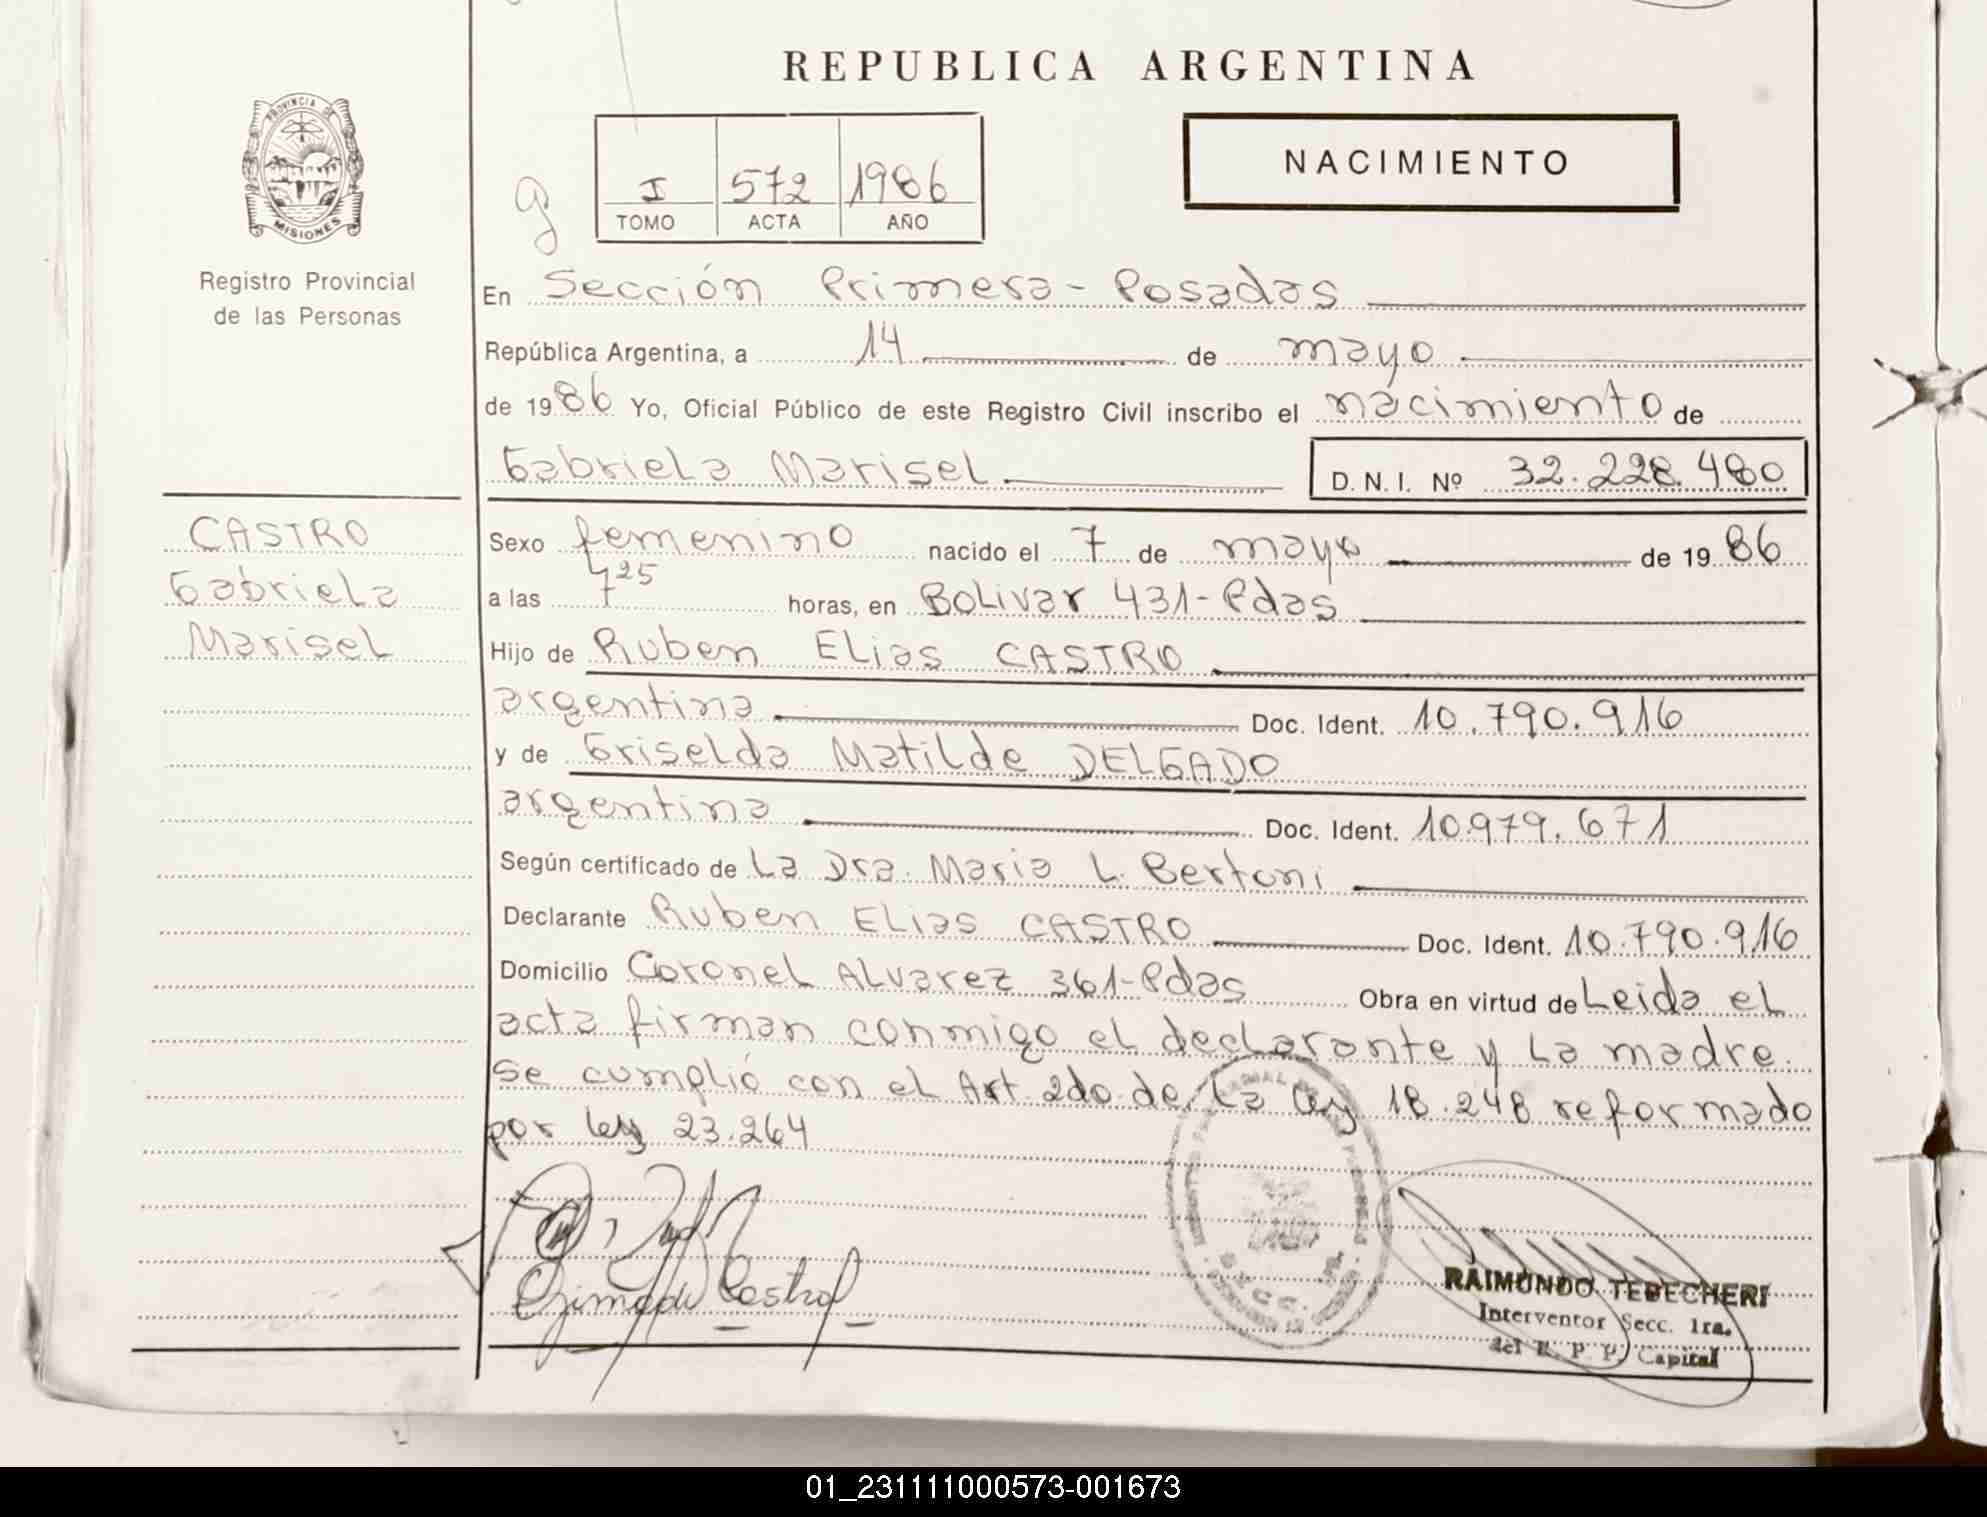 REPUBLICA ARGENTINA
PROVINCIA DE
MISIONES
Registro Provincial
de las Personas
I 572 1986
TOMO ACTA AÑO
NACIMIENTO
En Sección Primera - Posadas
República Argentina, a 14 de mayo
de 1986 Yo, Oficial Público de este Registro Civil inscribo el nacimiento de
Gabriela Marisel D. N. I. Nº 32.228.480
CASTRO
Gabriela
Marisel
Sexo femenino nacido el 7 de mayo de 1986
a las 7 25 horas, en Bolivar 431-Pdas
Hijo de Ruben Elias CASTRO
argentina Doc. Ident. 10.790.916
y de Griselda Matilde DELGADO
argentina Doc. Ident. 10.979.671
Según certificado de La Dra. Maria L. Bertoni
Declarante Ruben Elias CASTRO Doc. Ident. 10.790.916
Domicilio Coronel Alvarez 361-Pdas Obra en virtud de Leida el
acta firman conmigo el declarante y la madre.
Se cumplió con el Art. 2do. de la ley 18.248 reformado
por ley 23.264
RAIMUNDO TEBECHERI
Interventor Secc. 1ra.
del R. P. P. Capital
01_231111000573-001673